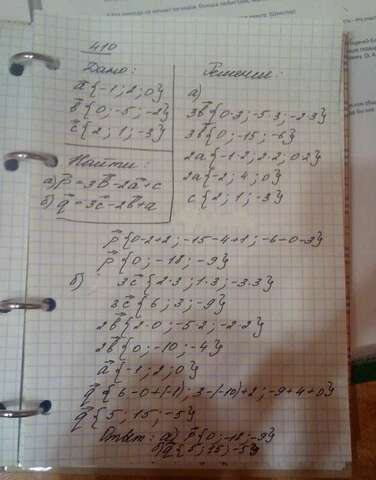 410
Дано:
a⃗{-1;2;0}
b⃗{0;-5;-2}
c⃗{2;1;-3}
Найти:
а) p⃗=3b⃗-2a⃗+c
б) q⃗=3c⃗-2b⃗+a
Решение:
а)
3b⃗{0·3;-5·3;-2·3}
3b⃗{0;-15;-6}
2a{-1·2;2·2;0·2}
2a{-2;4;0}
c{2;1;-3}
p⃗{0-2+2;-15-4+1;-6-0-3}
p⃗{0;-18;-9}
б) 3c⃗{2·3;1·3;-3·3}
3c⃗{6;3;-9}
2b⃗{2·0;-5·2;-2·2}
2b⃗{0;-10;-4}
a⃗{-1;2;0}
q⃗{6-0+(-1);3-(-10)+2;-9+4+0}
q⃗{5;15;-5}
Ответ: а) p⃗{0;-18;-9}
б) q⃗{5;15;-5}